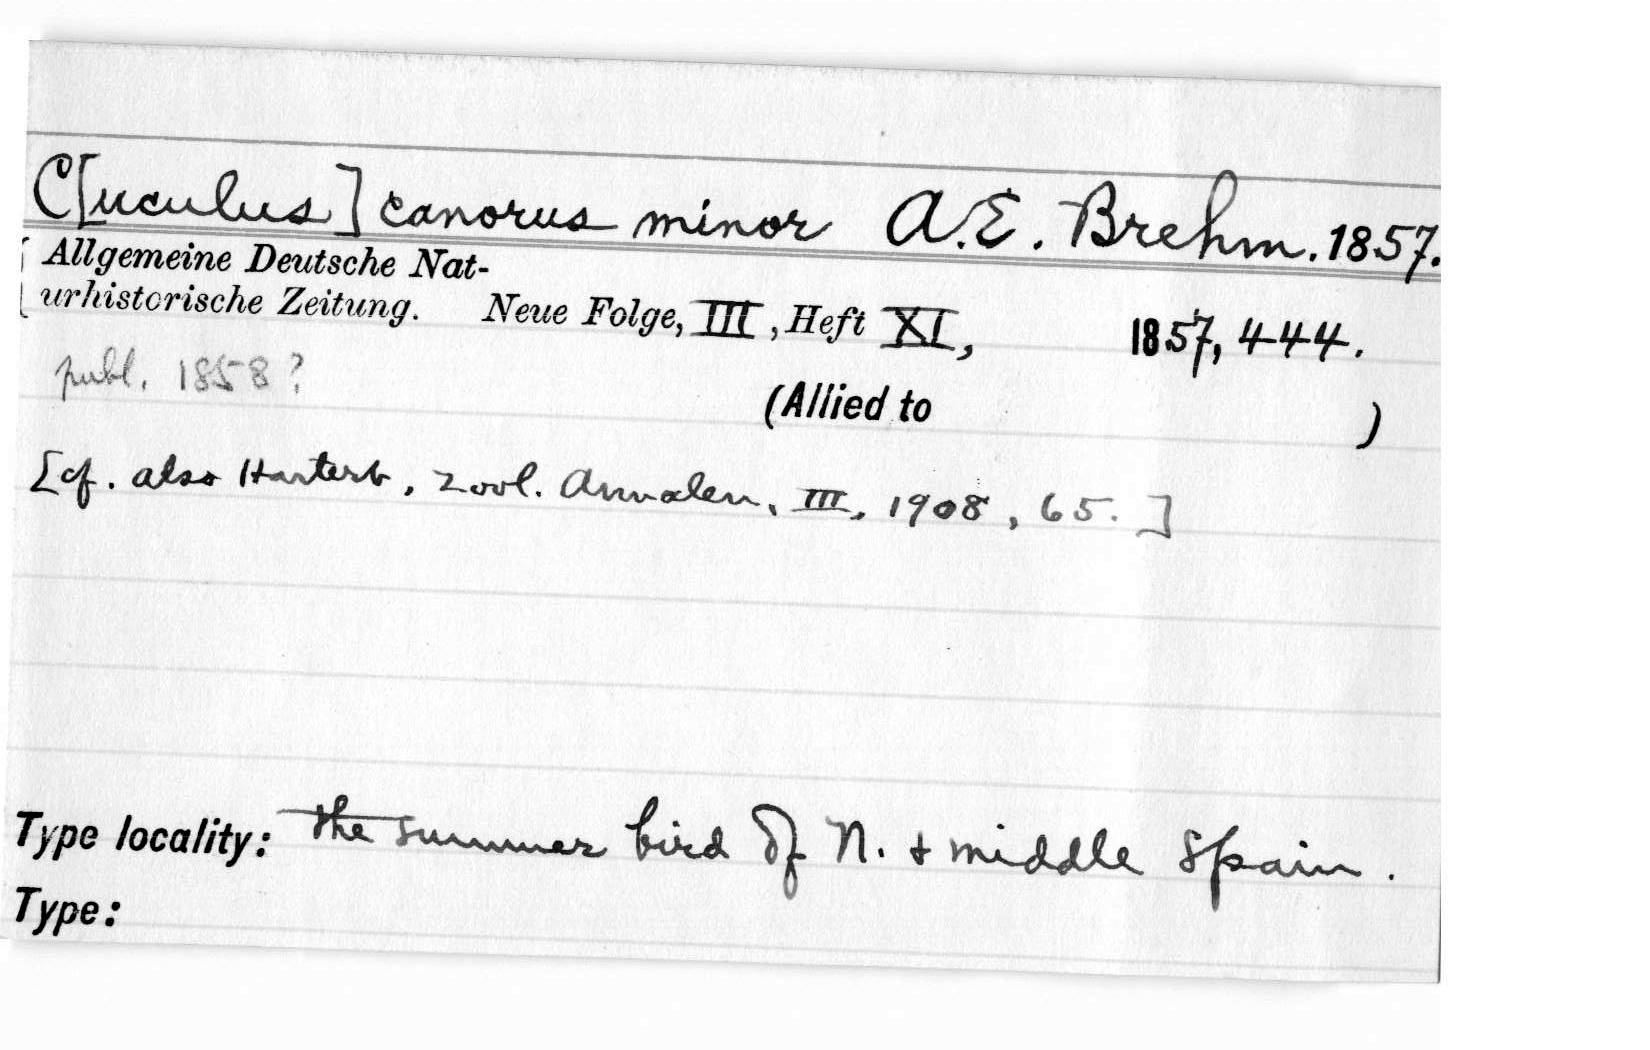 C[uculus] canorus minor A.E. Brehm. 1857.
Allgemeine Deutsche Nat-
urhistorische Zeitung. Neue Folge, III, Heft XI, 1857, 444.
publ. 1858?
(Allied to )
[cf. also Hartert, Zool. Annalen, III, 1908, 65.]
Type locality: the summer bird of N. + middle Spain.
Type: